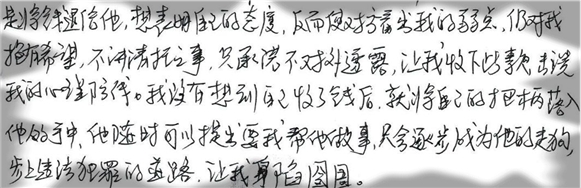 是将钱退给他,想表明自己的态度,反而使对方看出我的弱点,仍对我
抱有希望,不讲请托之事,只承诺不对外透露,让我收下此款,击溃
我的心理防线。我没有想到自己收了钱后,就将自己的把柄落入
他的手中,他随时可以提出要我帮他做事,只会逐步成为他的走狗,
步上违法犯罪的道路,让我身陷囹圄。